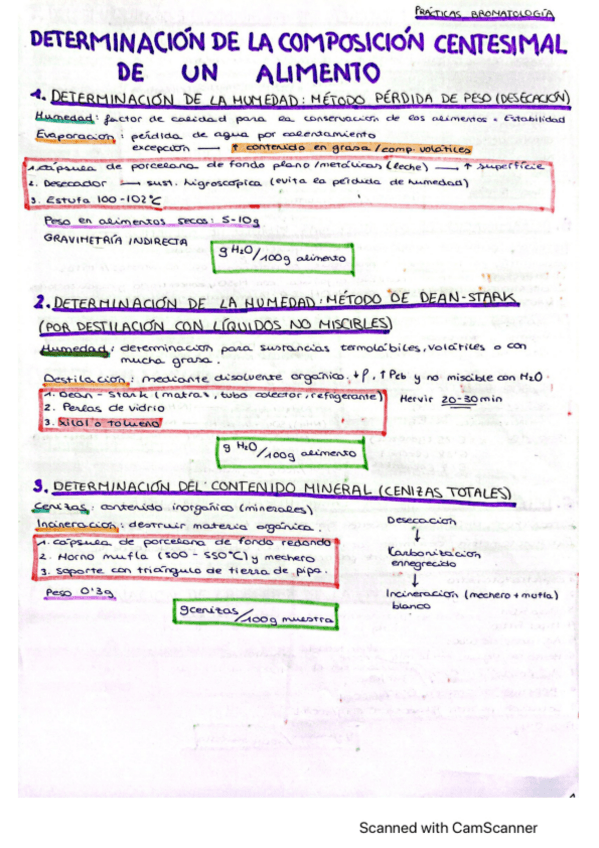 PRÁCTICAS BROMATOLOGÍA
DETERMINACIÓN DE LA COMPOSICIÓN CENTESIMAL
DE UN ALIMENTO
1. DETERMINACIÓN DE LA HUMEDAD: MÉTODO PÉRDIDA DE PESO (DESECACIÓN)
Humedad: factor de calidad para la conservación de los alimentos = Estabilidad
Evaporación: pérdida de agua por calentamiento
excepción → ↑ contenido en grasa/comp. volátiles
1. Cápsula de porcelana de fondo plano/metálicas (leche) → ↑ superficie
2. Desecador → sust. higroscópica (evita la pérdida de humedad)
3. Estufa 100-102°C
Peso en alimentos secos: 5-10g
GRAVIMETRÍA INDIRECTA
g H2O/100g alimento
2. DETERMINACIÓN DE LA HUMEDAD: MÉTODO DE DEAN-STARK
(POR DESTILACIÓN CON LÍQUIDOS NO MISCIBLES)
Humedad: determinación para sustancias termolábiles, volátiles o con
mucha grasa.
Destilación: mediante disolvente orgánico, ↓ρ, ↑Peb y no miscible con H2O.
1. Dean-Stark (matraz, tubo colector, refrigerante)
Hervir 20-30min
2. Perlas de vidrio
3. Xilol o tolueno
g H2O/100g alimento
3. DETERMINACIÓN DEL CONTENIDO MINERAL (CENIZAS TOTALES)
Cenizas: contenido inorgánico (minerales)
Incineración: destruir materia orgánica.
1. Cápsula de porcelana de fondo redondo
2. Horno mufla (500-550°C) y mechero
3. Soporte con triángulo de tierra de pipa.
Peso 0'3g
gcenizas/100g muestra
Desecación
↓
Karbonización
ennegrecido
↓
Incineración (mechero + mufla)
blanco
1
Scanned with CamScanner